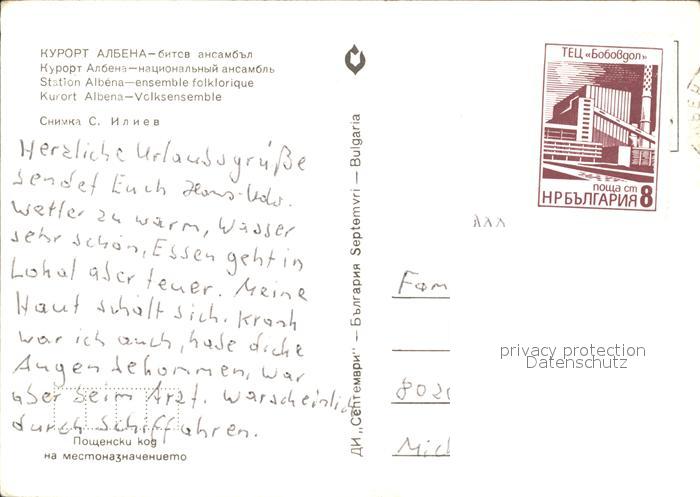 КУРОРТ АЛБЕНА—битов ансамбъл
Курорт Албена—национальный ансамбль
Station Albéna—ensemble folklorique
Kurort Albena—Volksensemble
Снимка С. Илиев
Herzliche Urlaubsgrüße
sendet Euch Hans-Udo.
Wetter zu warm, Wasser
sehr schön, Essen geht in
Lokal aber teuer. Meine
Haut schält sich. Krank
war ich auch, habe dicke
Augen bekommen, war
aber beim Arzt. Warscheinlich
durch Schifffahren.
Пощенски код
на местоназначението
ДИ „Септември" — България Septemvri — Bulgaria
ТЕЦ «Бобовдол»
поща ст
НР БЪЛГАРИЯ 8
Fam
privacy protection
Datenschutz
802